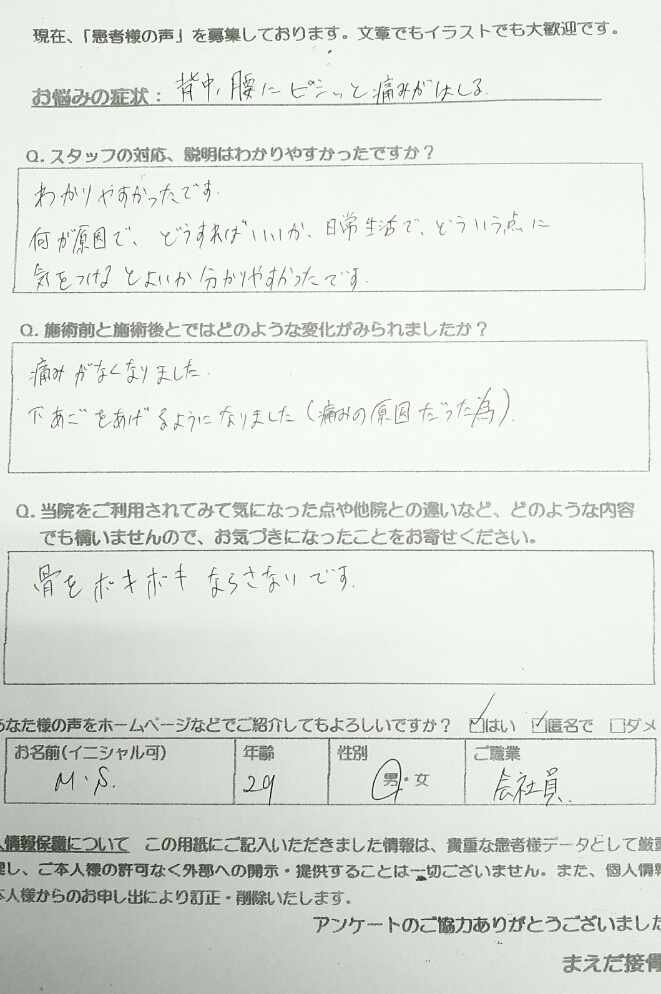 現在、「患者様の声」を募集しております。文章でもイラストでも大歓迎です。
お悩みの症状： 背中、腰にピシッと痛みがはしる
Q. スタッフの対応、説明はわかりやすかったですか？
わかりやすかったです。
何が原因で、どうすればいいか、日常生活で、どういう点に
気をつけるとよいか分かりやすかったです。
Q. 施術前と施術後とではどのような変化がみられましたか？
痛みがなくなりました。
下あごをあげるようになりました（痛みの原因だった為）。
Q. 当院をご利用されてみて気になった点や他院との違いなど、どのような内容
でも構いませんので、お気づきになったことをお寄せください。
骨をボキボキならさないです。
あなた様の声をホームページなどでご紹介してもよろしいですか？ ☑はい ☑匿名で □ダメ
お名前(イニシャル可) 年齢 性別 ご職業
M・S. 29 男・女 会社員
人情報保護について この用紙にご記入いただきました情報は、貴重な患者様データとして厳重
理し、ご本人様の許可なく外部への開示・提供することは一切ございません。また、個人情報
本人様からのお申し出により訂正・削除いたします。
アンケートのご協力ありがとうございました
まえだ接骨